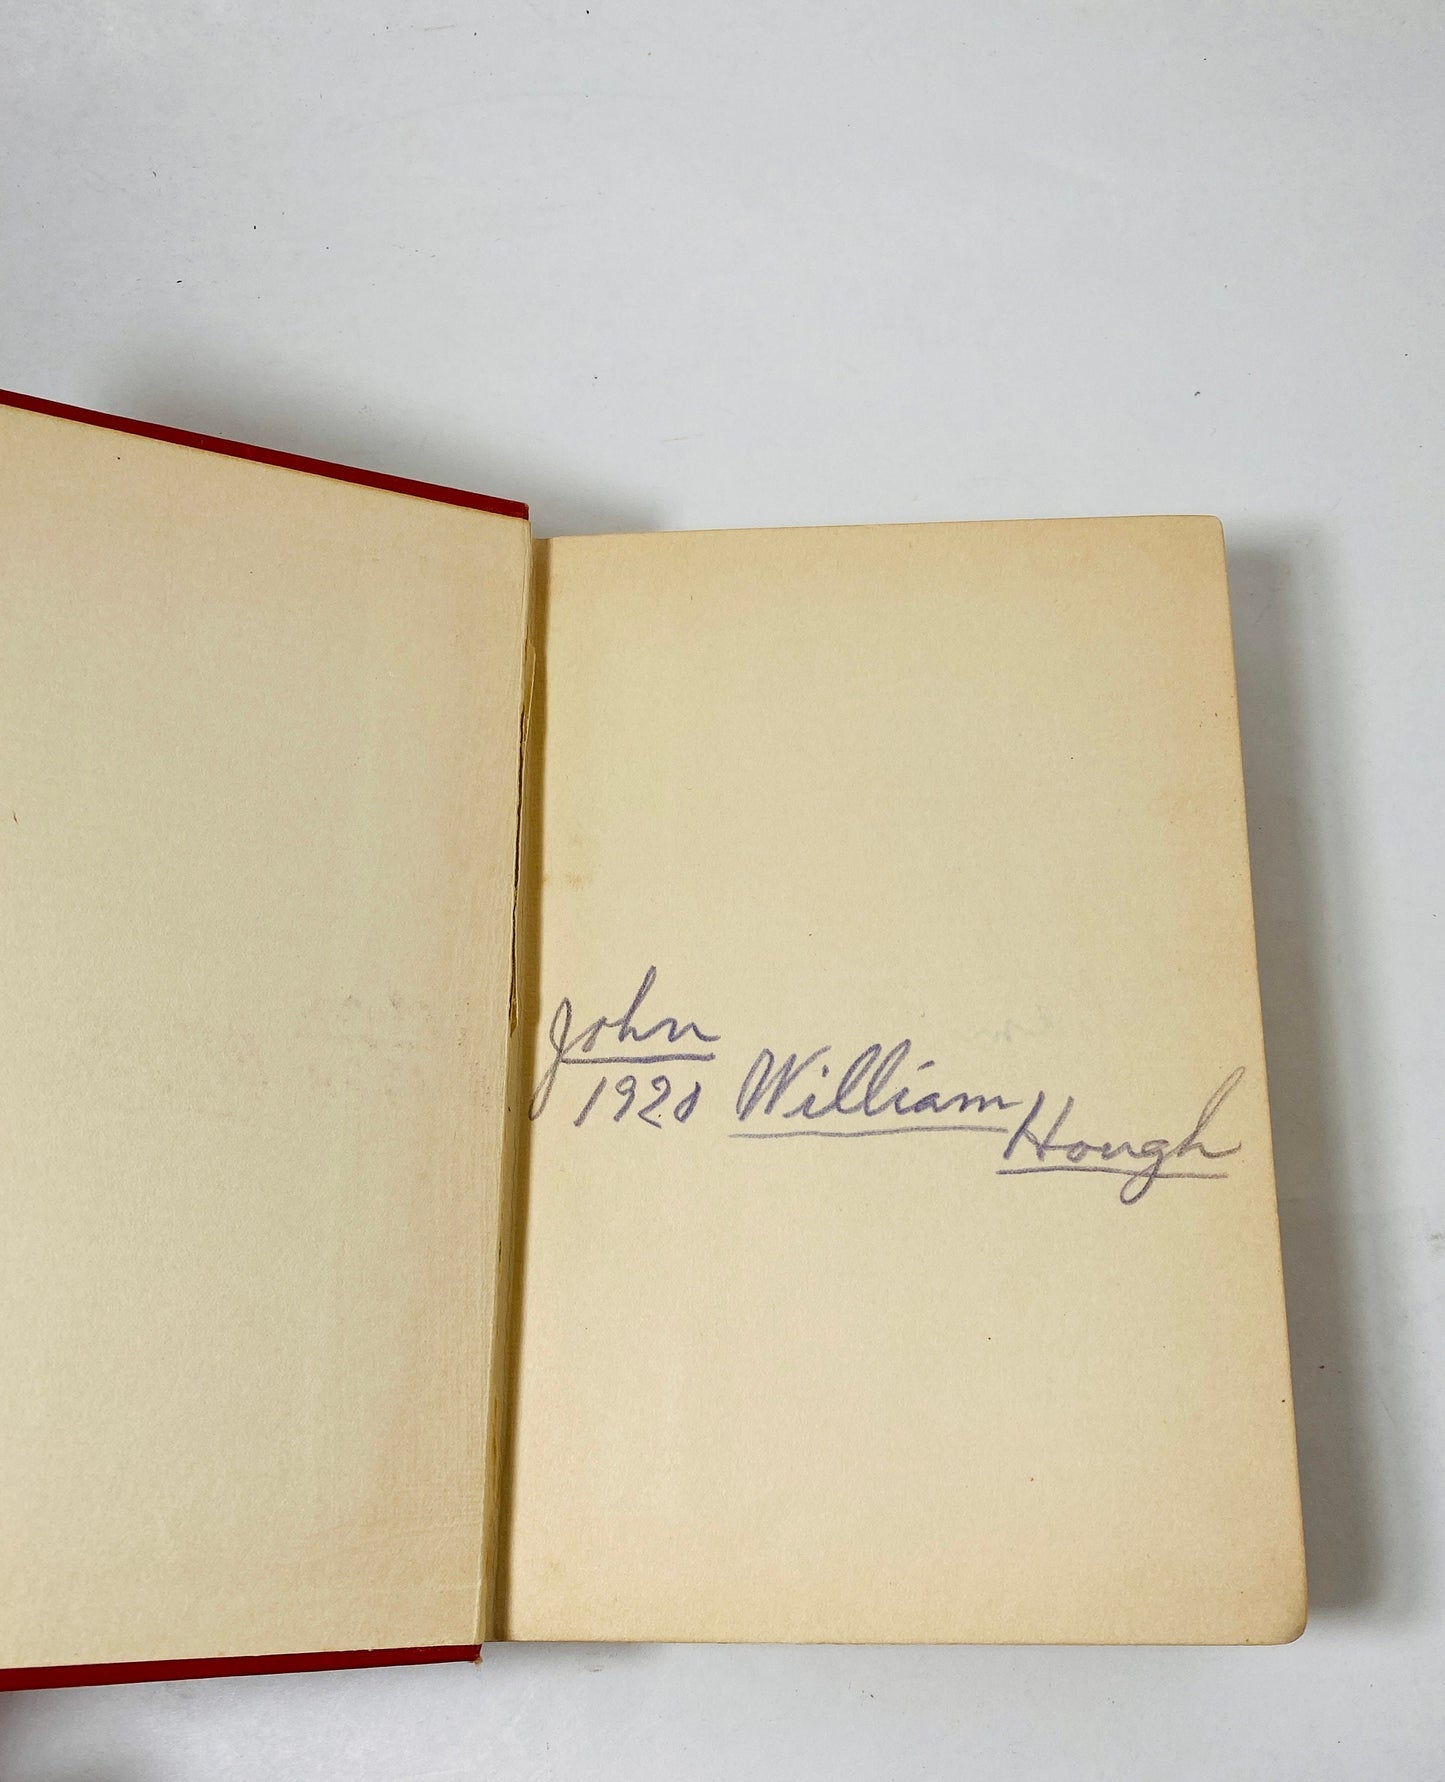 John
1928 William
Hough